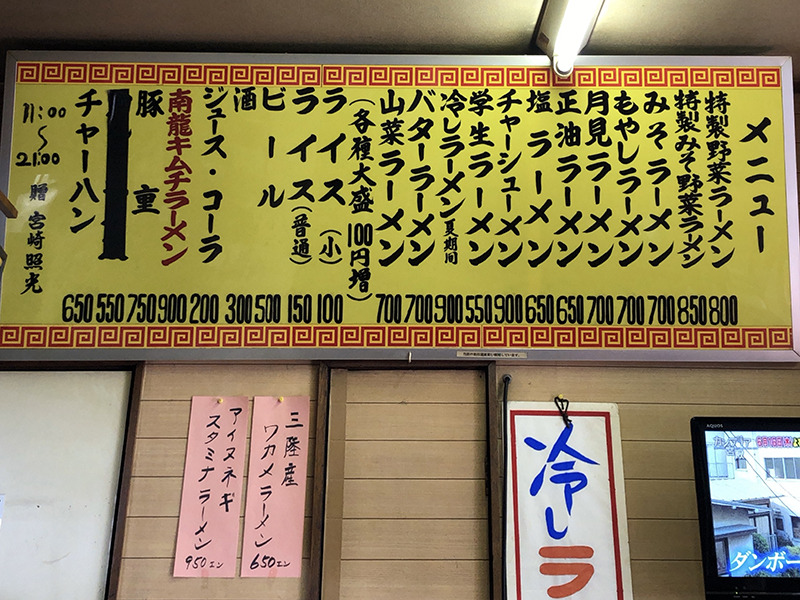 メニュー
特製野菜ラーメン 800
特製みそ野菜ラーメン 850
みそラーメン 700
もやしラーメン 700
月見ラーメン 700
正油ラーメン 650
塩ラーメン 650
チャーシューメン 900
学生ラーメン 550
冷しラーメン 夏期間 900
バターラーメン 700
山菜ラーメン 700
(各種大盛 100円増)
ライス(小) 100
ライス(普通) 150
ビール 500
酒 300
ジュース・コーラ 200
南龍キムチラーメン 900
豚重 750
550
チャーハン 650
11:00
〜
21:00
贈 宮崎照光
三陸産
ワカメラーメン
650エン
アイヌネギ
スタミナラーメン
950エン
冷しラ
AQUOS
ダンボー